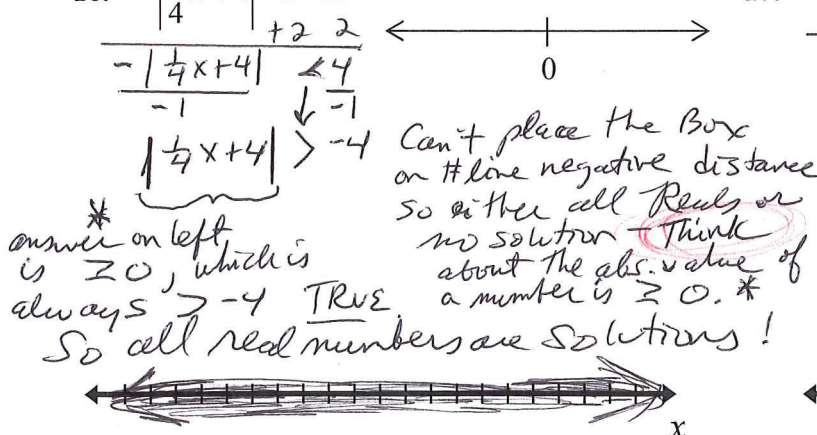 |4 |
+2 2
-|1/4x+4| < 4
-1 -1
|1/4x+4| > -4
0
Can't place the Box
on # line negative distance
so either all Reals or
no solution - Think
about the abs. value of
a number is ≥ 0. *
*
answer on left
is ≥0, which is
always > -4 TRUE.
So all real numbers are solutions!
x